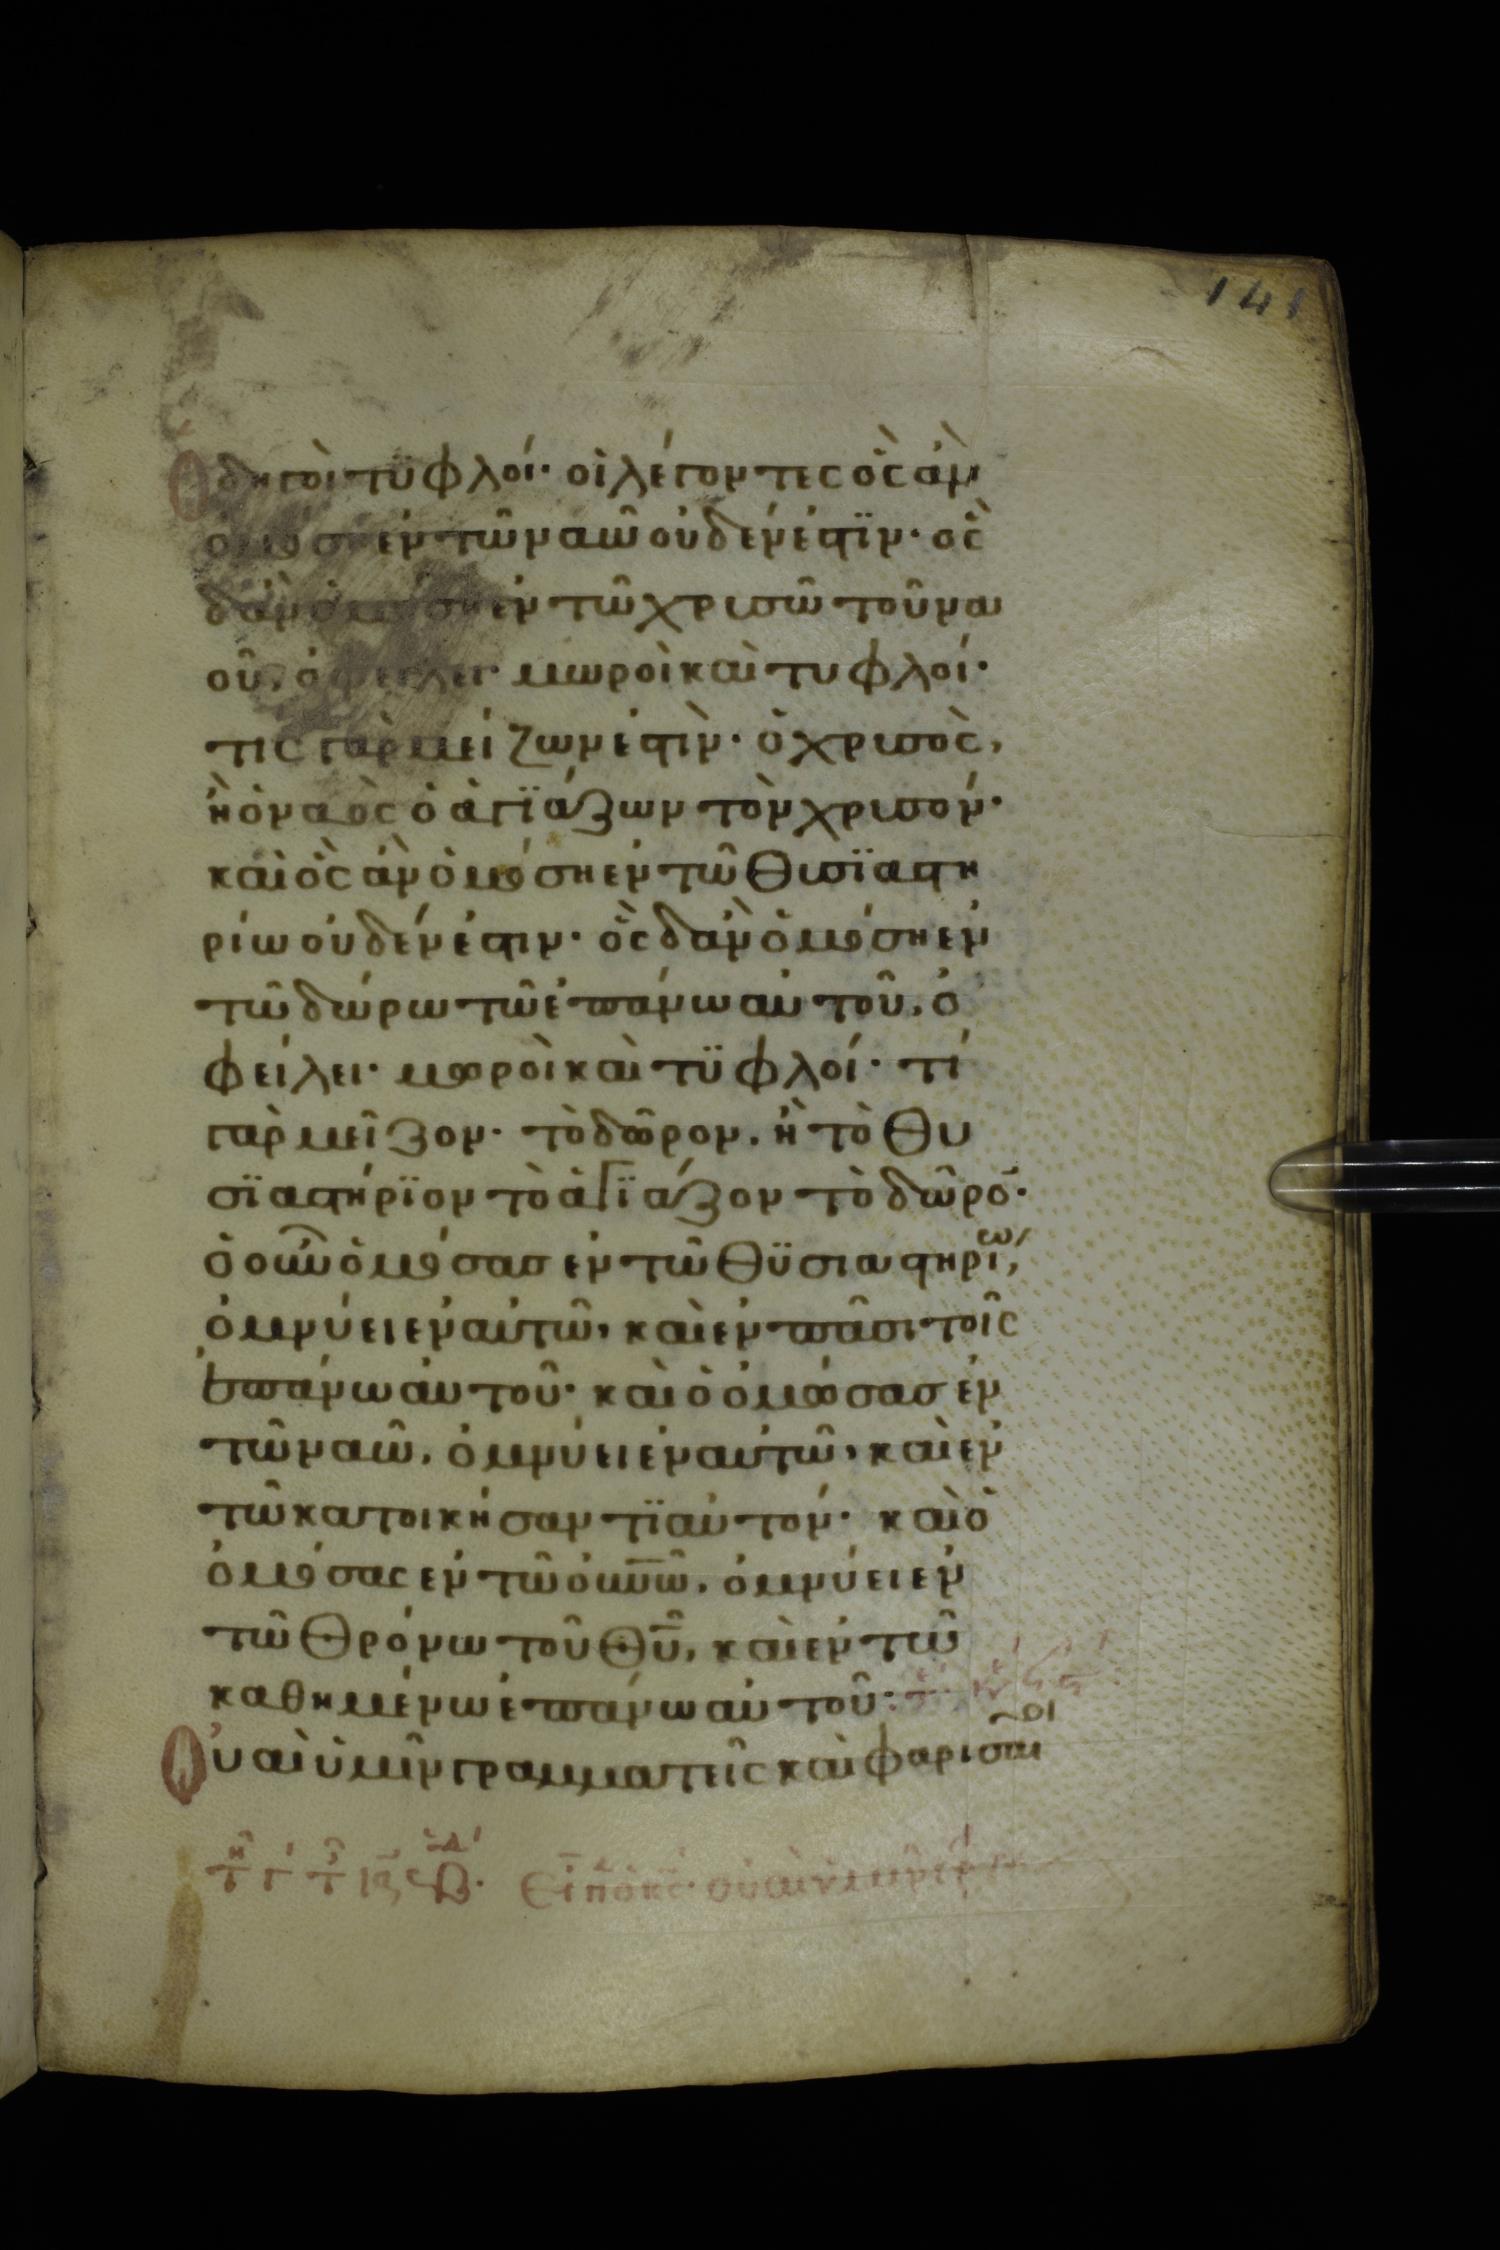 141
Ὁδηγοὶ τϋφλοί· οἱ λέγοντες ὃς ἂν
ὀμόση ἐν τῶ ναῶ οὐδέν ἐστϊν· ὃς
δἂν ὀμόση ἐν τῶ χρυσῶ τοῦ να
οῦ, ὀφείλει· μωροὶ καὶ τυφλοί·
τίς γὰρ μείζων ἐστὶν· ὁ χρυσὸς,
ἢ ὁ ναὸς ὁ ἁγϊάζων τὸν χρυσόν·
καὶ ὃς ἂν ὀμόση ἐν τῶ θυσϊαστη
ρίω οὐδέν ἐστιν· ὃς δἂν ὀμόση ἐν
τῶ δώρω τῶ ἐπάνω αὐτοῦ, ὀ
φείλει· μωροὶ καὶ τϋφλοί· τί
γὰρ μεῖζον· τὸ δῶρον, ἢ τὸ θυ
σϊαστήρϊον τὸ ἁγϊάζον τὸ δῶρο̅·
ὁ οὖν ὀμόσας ἐν τῶ θϋσιαστηρίω,
ὀμνύει ἐν αὐτῶ, καὶ ἐν πᾶσι τοῖς
ἐπάνω αὐτοῦ· καὶ ὁ ὀμόσας ἐν
τῶ ναῶ, ὀμνύει ἐν αὐτῶ, καὶ ἐν
τῶ κατοικήσαντϊ αὐτόν· καὶ ὁ
ὀμόσας ἐν τῶ οὐνῶ, ὀμνύει ἐν
τῶ θρόνω τοῦ θυ̅, καὶ ἐν τῶ
καθημένω ἐπάνω αὐτοῦ:
Οὐαὶ ὑμῖν γραμματεῖς καὶ φαρισαῖοι